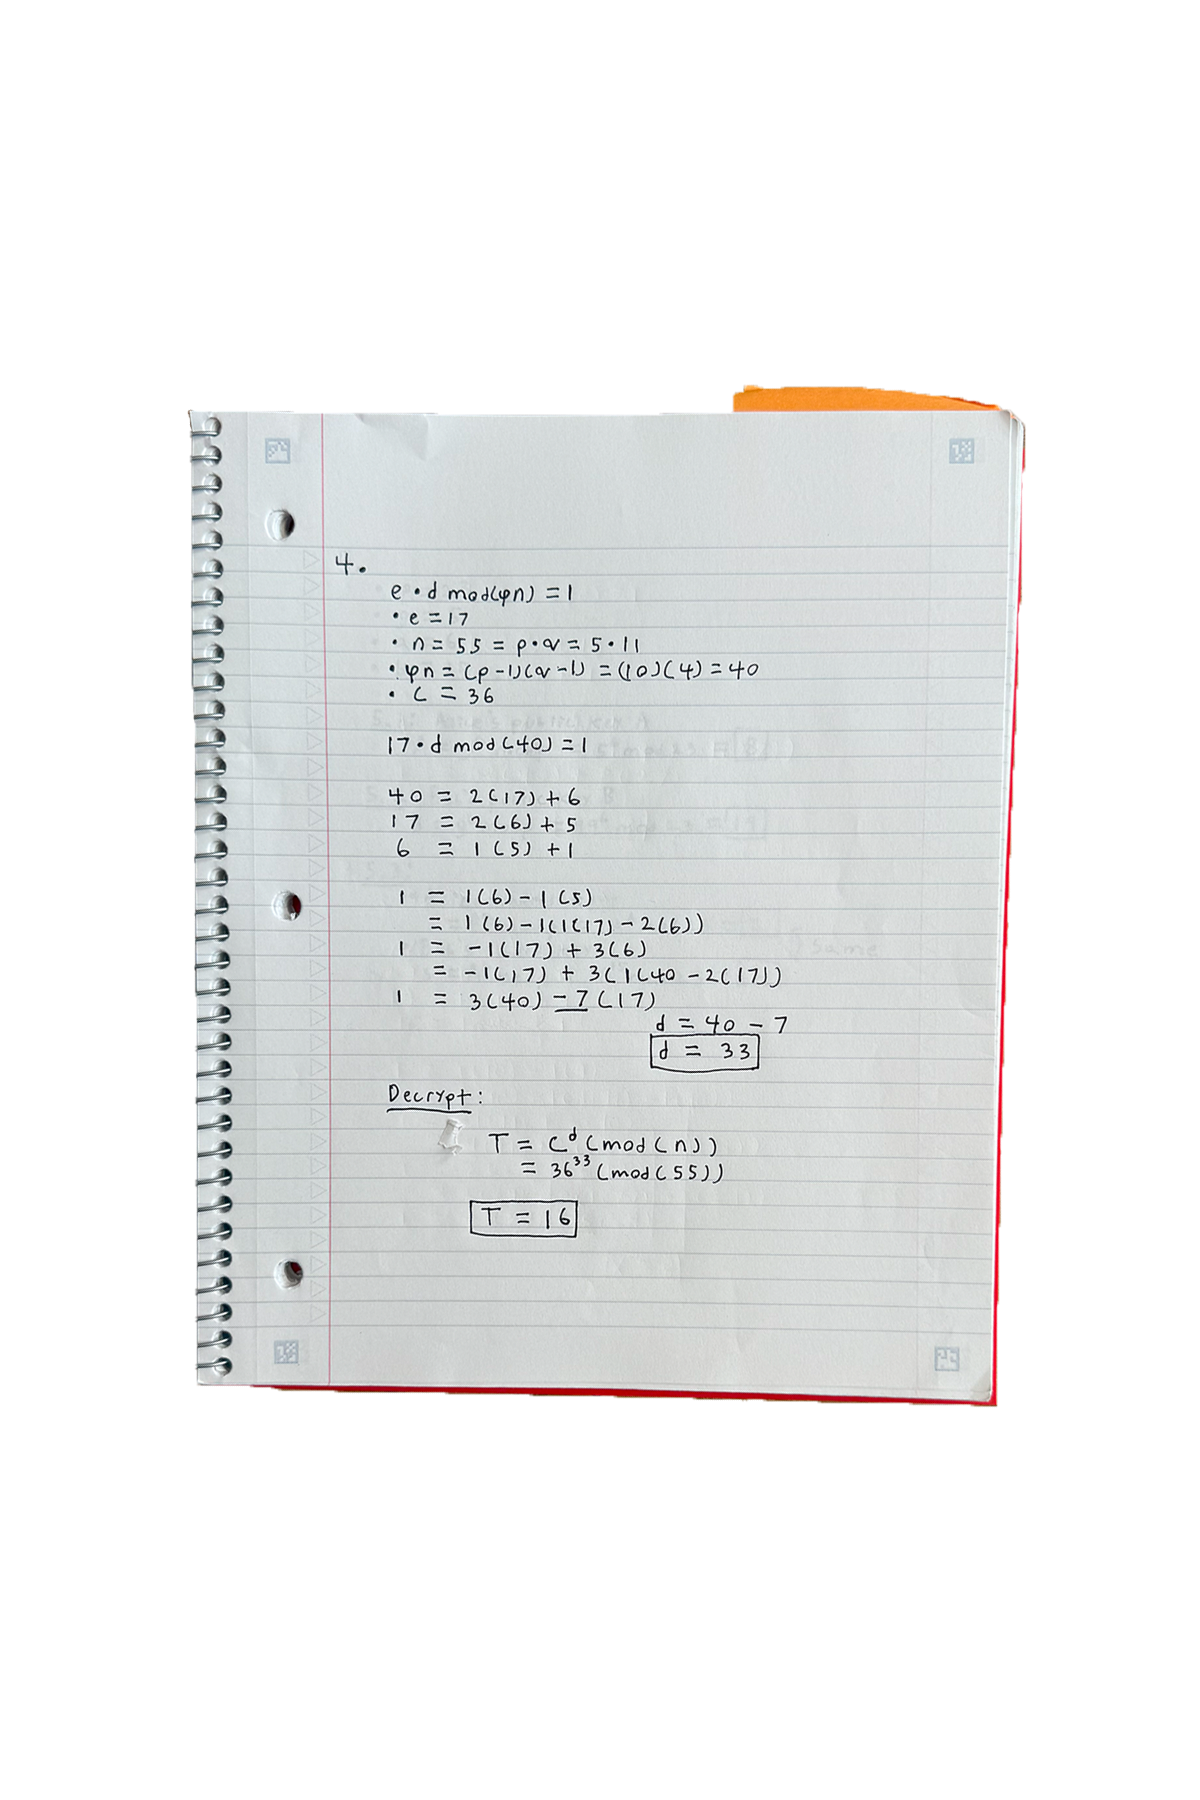 4.
e • d mod(φn) = 1
• e = 17
• n = 55 = p • q = 5 • 11
• φn = (p - 1)(q - 1) = (10)(4) = 40
• C = 36
17 • d mod(40) = 1
40 = 2(17) + 6
17 = 2(6) + 5
6 = 1(5) + 1
1 = 1(6) - 1(5)
= 1(6) - 1(1(17) - 2(6))
1 = -1(17) + 3(6)
= -1(17) + 3(1(40 - 2(17))
1 = 3(40) - 7(17)
d = 40 - 7
d = 33
Decrypt:
T = C^d (mod(n))
= 36^33 (mod(55))
T = 16